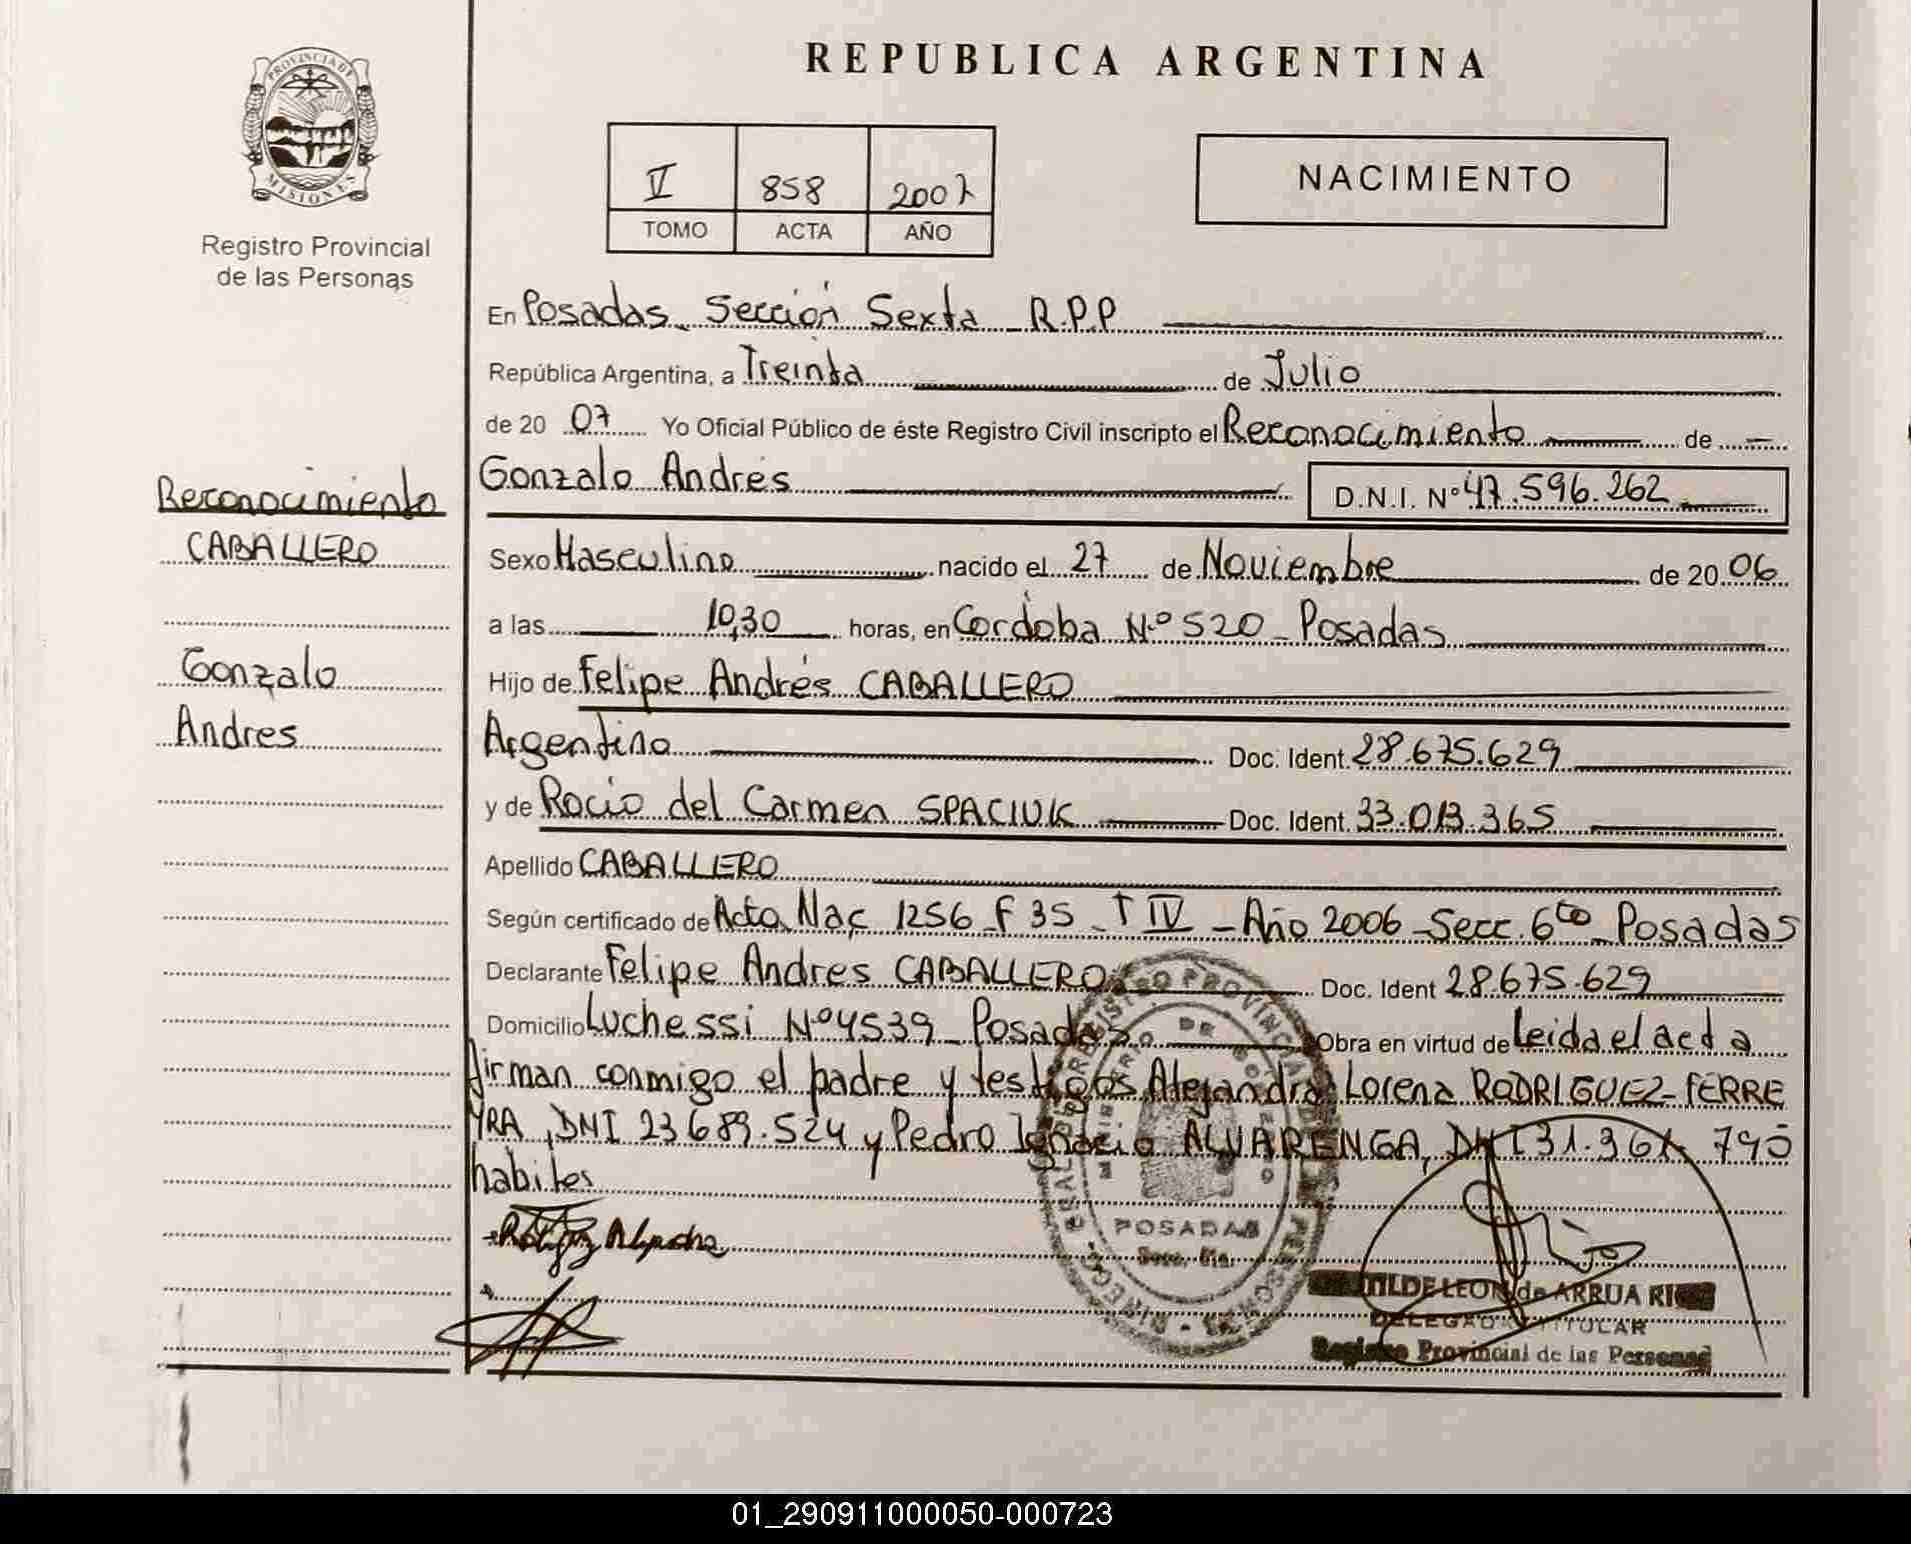 REPUBLICA ARGENTINA
PROVINCIA DE
MISIONES
Registro Provincial
de las Personas
V 858 2007
TOMO ACTA AÑO
NACIMIENTO
En Posadas Sección Sexta R.P.P
República Argentina, a Treinta de Julio
de 20 07 Yo Oficial Público de éste Registro Civil inscripto el Reconocimiento de
Gonzalo Andrés D.N.I. Nº 47.596.262
Reconocimiento
CABALLERO
Gonzalo
Andres
Sexo Masculino nacido el 27 de Noviembre de 20 06
a las 10,30 horas, en Cordoba Nº 520 Posadas
Hijo de Felipe Andrés CABALLERO
Argentino Doc. Ident. 28.675.629
y de Rocio del Carmen SPACIUK Doc. Ident. 33.013.365
Apellido CABALLERO
Según certificado de Acta Nac 1256 F 35 T IV - Año 2006 Secc. 6ta Posadas
Declarante Felipe Andres CABALLERO Doc. Ident 28.675.629
Domicilio Luchessi Nº 4539 Posadas Obra en virtud de Leida el acta
firman conmigo el padre y testigos Alejandra Lorena RODRIGUEZ-FERRE
YRA, DNI 23689.524 y Pedro Ignacio ALVARENGA, DNI 31.361 790
habiles
POSADAS
TILDE LEON de ARRUA
DELEGADA TITULAR
Registro Provincial de las Personas
01_290911000050-000723